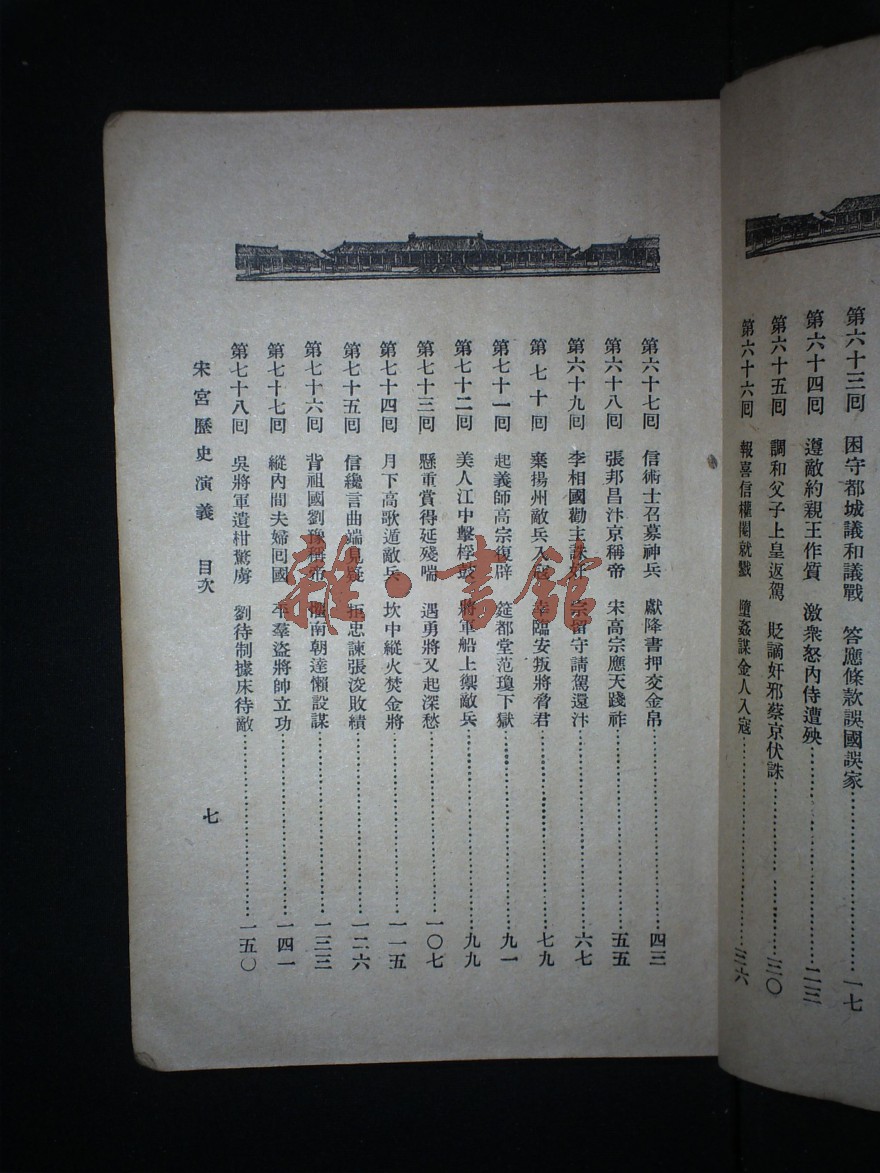 第六十三回 困守都城議和議戰 答應條款誤國誤家…………一七
第六十四回 遵敵約親王作質 激衆怒內侍遭殃…………二三
第六十五回 調和父子上皇返駕 貶謫奸邪蔡京伏誅…………三〇
第六十六回 報喜信權閹就戮 墮姦謀金人入寇…………三六
第六十七回 信術士召募神兵 獻降書押交金帛…………四三
第六十八回 張邦昌汴京稱帝 宋高宗應天踐祚…………五五
第六十九回 李相國勸主誅奸 宗留守請駕還汴…………六七
第七十回 棄揚州敵兵入寇 幸臨安叛將脅君…………七九
第七十一回 起義師高宗復辟 筵都堂范瓊下獄…………九一
第七十二回 美人江中擊桴鼓 將軍船上禦敵兵…………九九
第七十三回 懸重賞得延殘喘 遇勇將又起深愁…………一〇七
第七十四回 月下高歌遁敵兵 坎中縱火焚金將…………一一五
第七十五回 信纔言曲端見疑 拒忠諫張浚敗績…………一二六
第七十六回 背祖國劉豫稱帝 南朝達懶設謀…………一三三
第七十七回 縱內間夫婦回國 平羣盜將帥立功…………一四一
第七十八回 吳將軍遺柑驚虜 劉待制據床待敵…………一五〇
宋宮歷史演義 目次 七
雜·書館